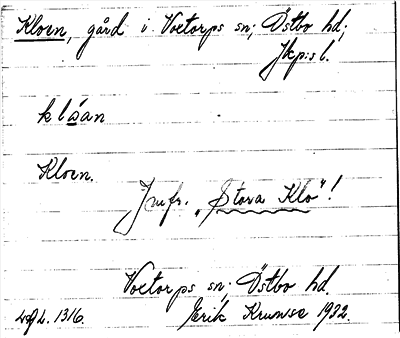 Kloen, gård i Voetorps sn; Östbo hd;
Jkps l.
klòan
Kloen.
Jmfr. "Stora Klo"!
Voetorps sn; Östbo hd.
L. 1316. Erik Krunse 1932.